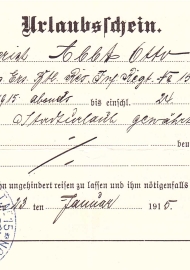 Urlaubsschein.
Abbt Otto
Ers. Btl. Res. Inf. Regt. No 15
1915 abends bis einschl. 24.
Stadturlaub gewährt
ihn ungehindert reisen zu lassen und ihm nötigenfalls
23 ten Januar 1915